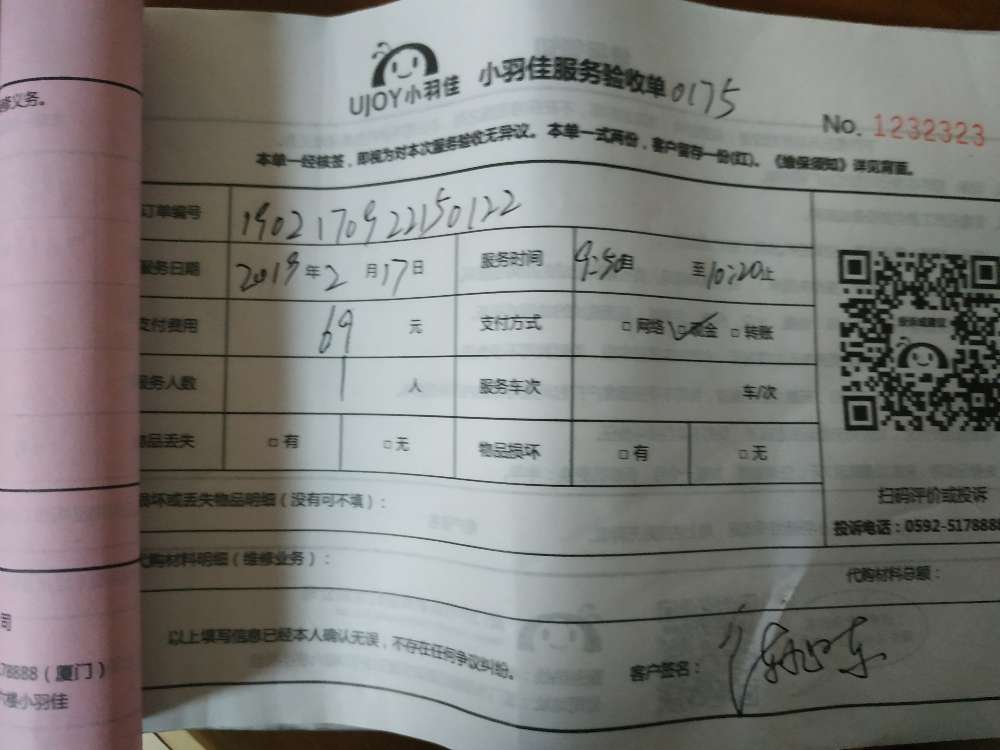 修义务。
UJOY小羽佳 小羽佳服务验收单 0175
No. 1232323
本单一经核签，即视为对本次服务验收无异议。本单一式两份，客户留存一份(红)。《维保须知》详见背面。
订单编号 1902170922150122
服务日期 2019年2月17日 服务时间 9:50自 至10:20止
支付费用 69 元 支付方式 □网络 □现金 □转账
服务人数 1 人 服务车次 车/次
物品丢失 □有 □无 物品损坏 □有 □无
扫码评价或投诉
损坏或丢失物品明细（没有可不填）：
投诉电话：0592-5178888
代购材料明细（维修业务）：
代购材料总额：
司
以上填写信息已经本人确认无误，不存在任何争议纠纷。
客户签名：
78888（厦门）
楼小羽佳